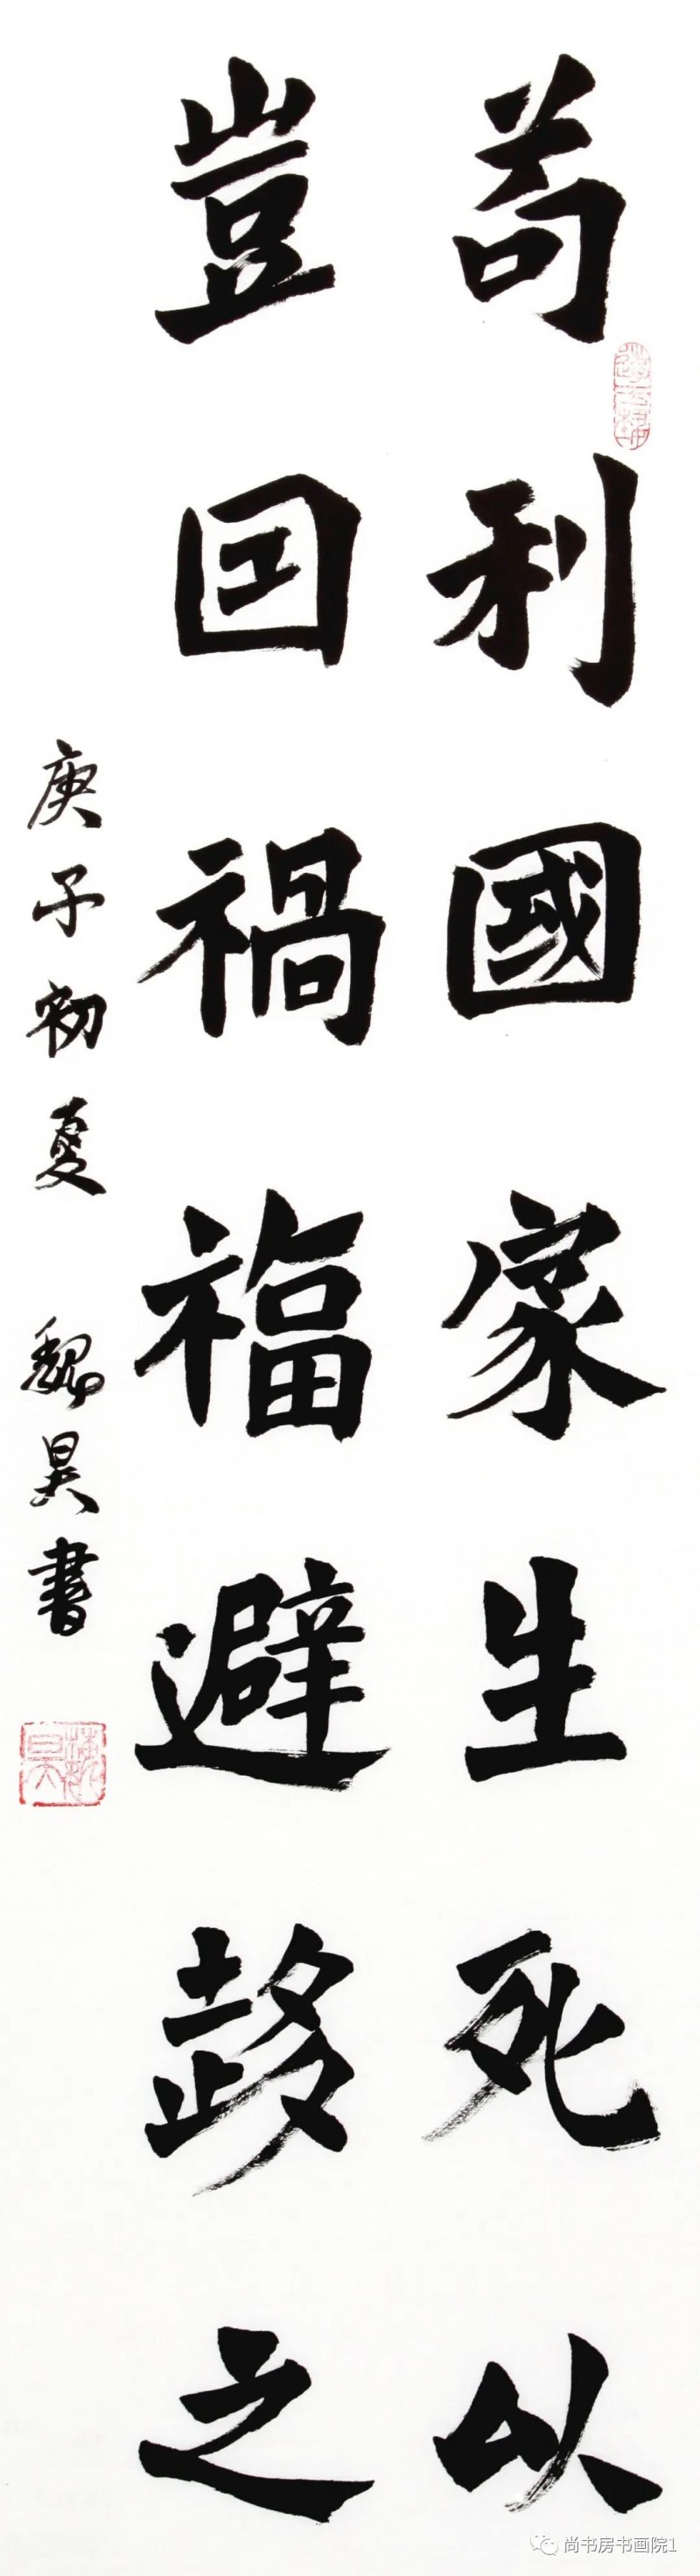 苟利國家生死以
豈囙禍福避趍之
庚子初夏 魏昊書
魏昊
尚书房书画院1